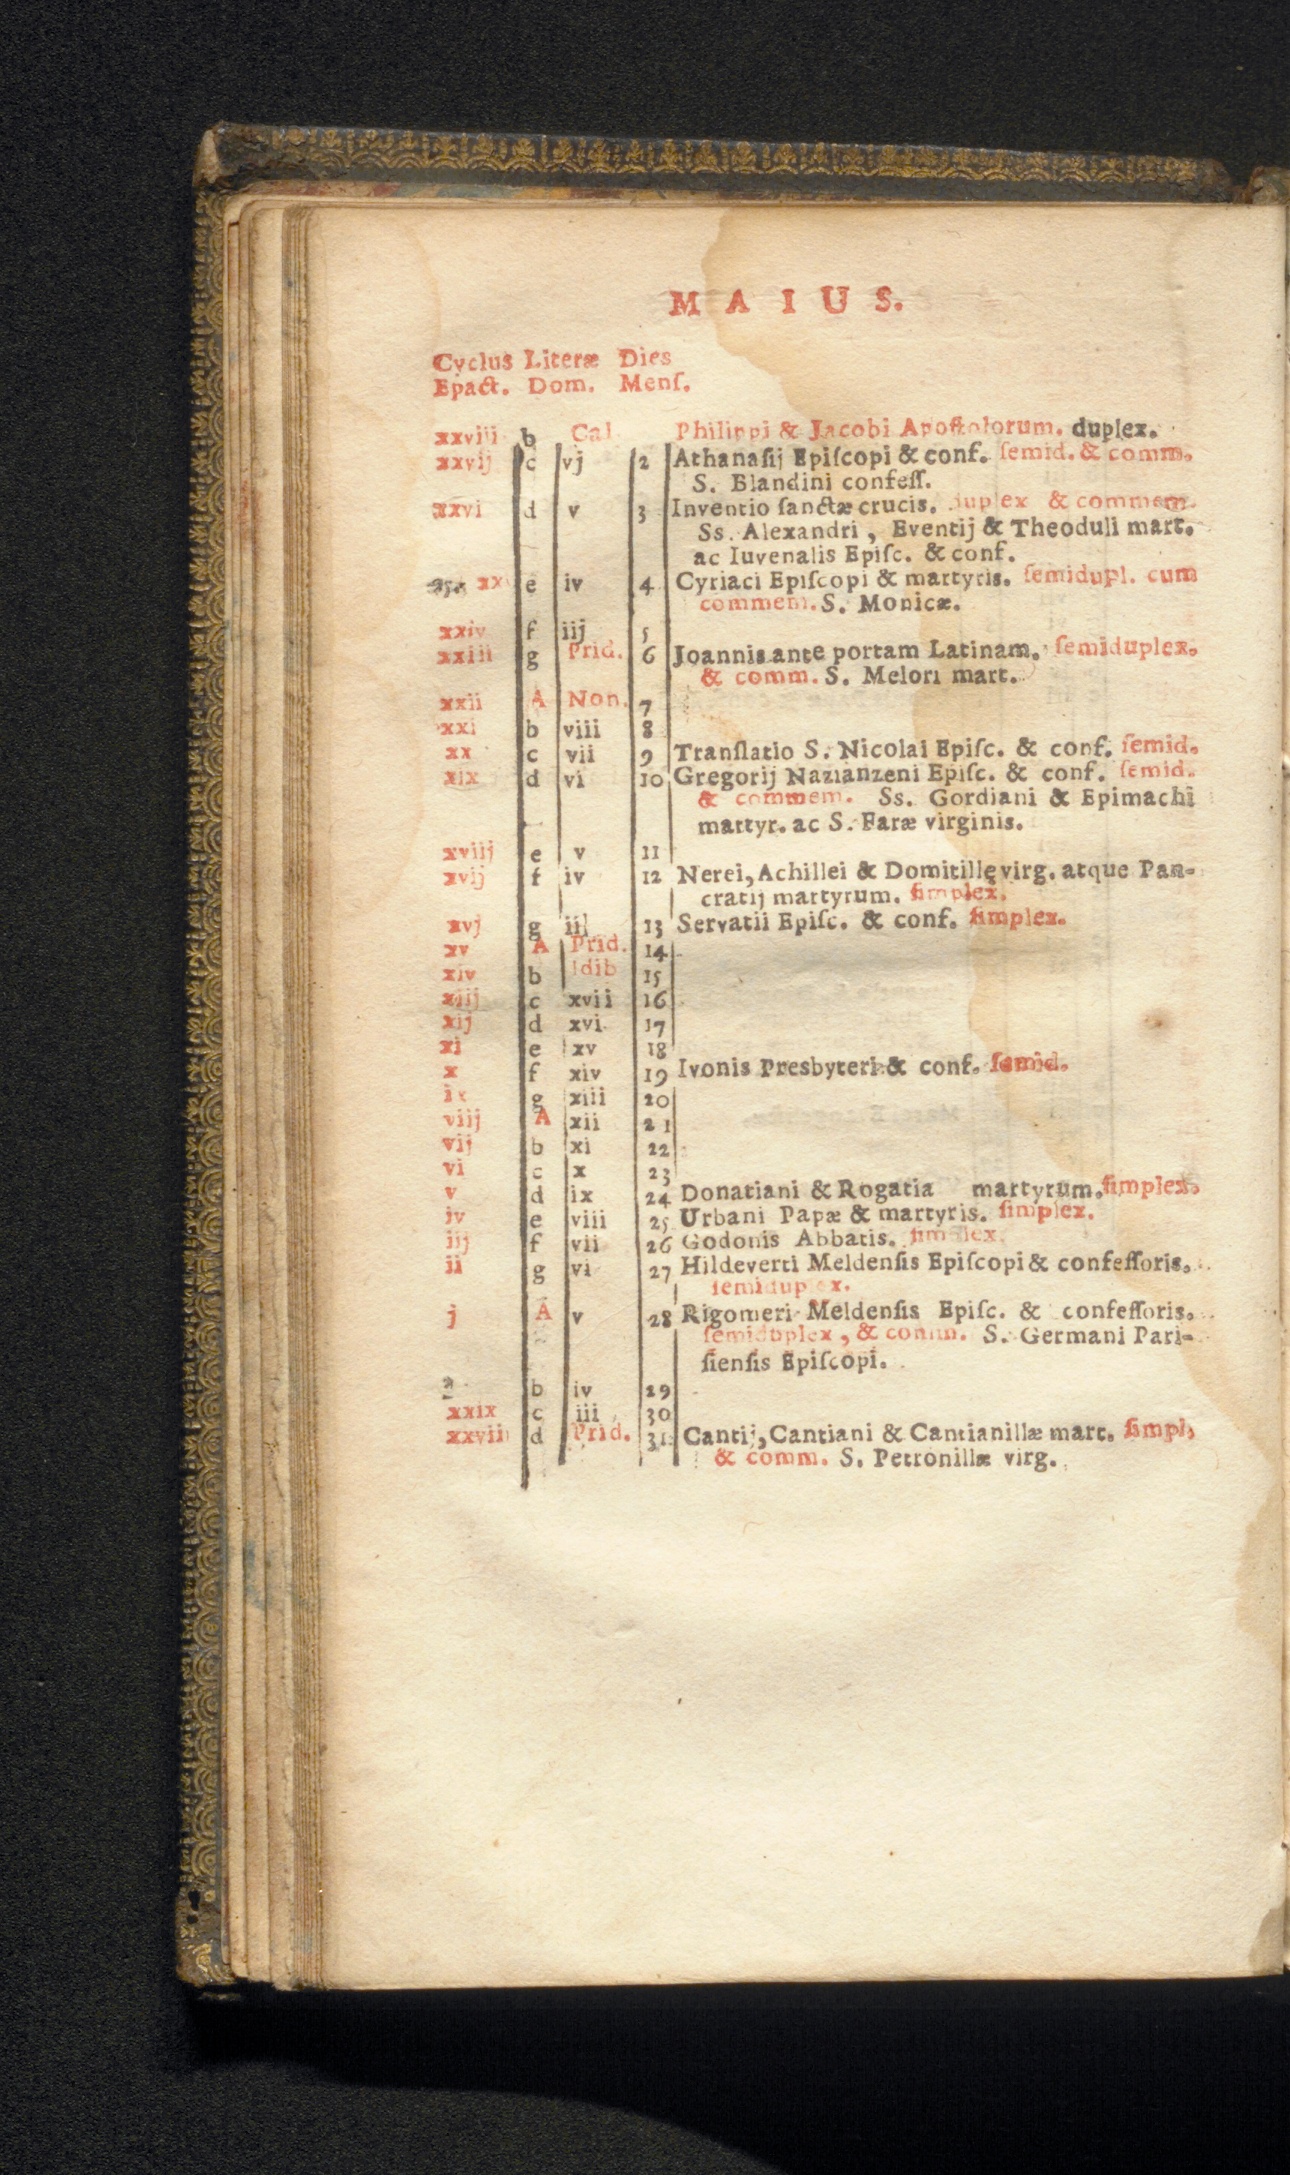 MAIUS.
Cyclus Literæ Dies
Epact. Dom. Menſ.
xxviii b Cal. Philippi & Jacobi Apoſtolorum. duplex.
xxvij c vj 2 Athanaſij Epiſcopi & conf. ſemid. & comm.
S. Blandini confeſſ.
xxvi d v 3 Inventio ſanctæ crucis. duplex & commem.
Ss. Alexandri, Eventij & Theoduli mart.
ac Iuvenalis Epiſc. & conf.
e iv 4 Cyriaci Epiſcopi & martyris. ſemidupl. cum
commem. S. Monicæ.
xxiv f iij 5
xxiii g Prid. 6 Joannis ante portam Latinam. ſemiduplex.
& comm. S. Melori mart.
xxii A Non. 7
xxi b viii 8
xx c vii 9 Tranſlatio S. Nicolai Epiſc. & conf. ſemid.
xix d vi 10 Gregorij Nazianzeni Epiſc. & conf. ſemid.
& commem. Ss. Gordiani & Epimachi
martyr. ac S. Faræ virginis.
xviij e v 11
xvij f iv 12 Nerei, Achillei & Domitillę virg. atque Pan-
cratij martyrum. ſimplex.
xvj g iii 13 Servatii Epiſc. & conf. ſimplex.
xv A Prid. 14
xiv b Idib 15
xiij c xvii 16
xij d xvi 17
xi e xv 18
x f xiv 19 Ivonis Presbyteri & conf. ſemid.
ix g xiii 20
viij A xii 21
vij b xi 22
vi c x 23
v d ix 24 Donatiani & Rogatia martyrum. ſimplex.
iv e viii 25 Urbani Papæ & martyris. ſimplex.
iij f vii 26 Godonis Abbatis. ſimplex.
ii g vi 27 Hildeverti Meldenſis Epiſcopi & confeſſoris.
ſemiduplex.
j A v 28 Rigomeri Meldenſis Epiſc. & confeſſoris.
ſemiduplex, & comm. S. Germani Pari-
ſienſis Epiſcopi.
b iv 29
xxix c iii 30
xxviii d Prid. 31 Cantij, Cantiani & Cantianillæ mart. ſimpl,
& comm. S. Petronillæ virg.